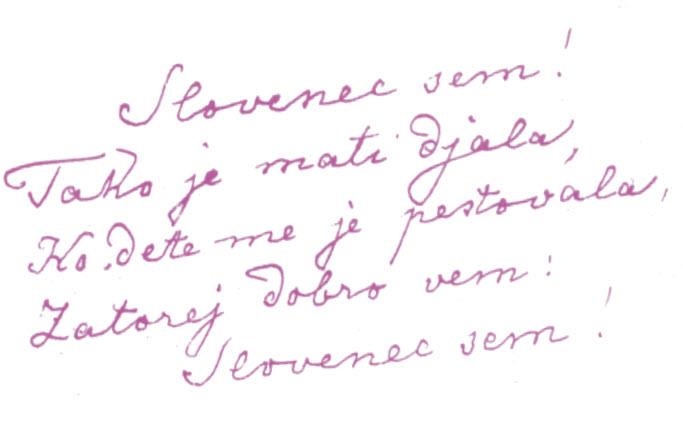 Slovenec sem!
Tako je mati djala,
Ko dete me je pestovala,
Zatorej dobro vem:
Slovenec sem!